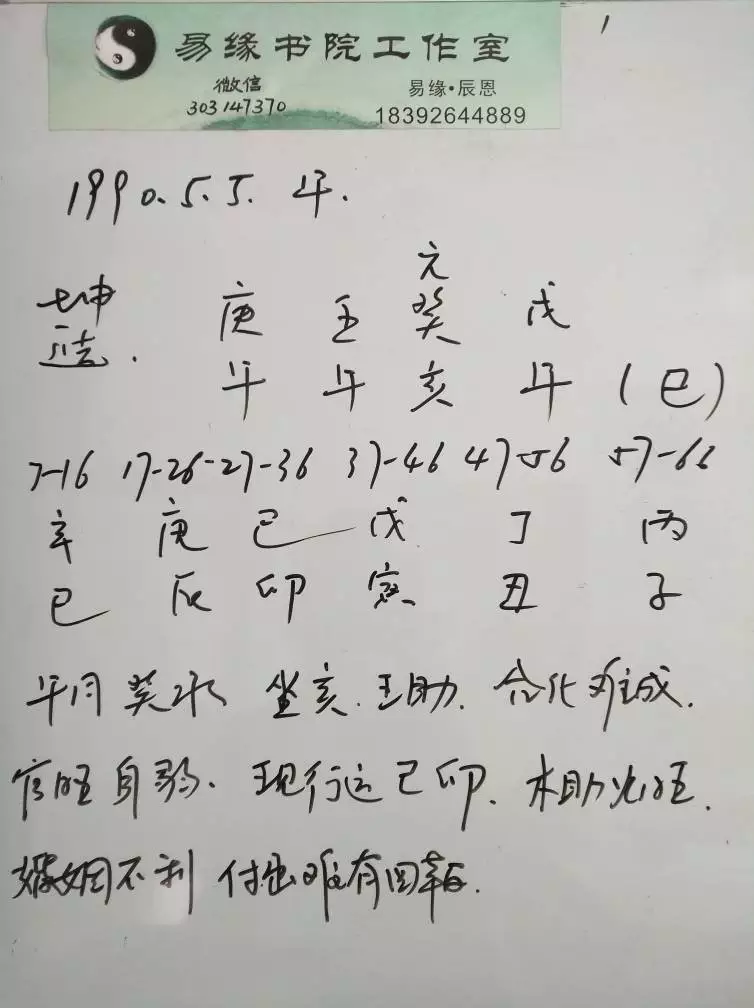 1
易缘书院工作室
微信
303147370
易缘·辰恩
18392644889
1990.5.5. 午.
坤造. 庚 壬 元癸 戊
午 午 亥 午 (巳)
7-16 17-26-27-36 37-46 47-56 57-66
辛 庚 己 戊 丁 丙
巳 辰 卯 寅 丑 子
午月癸水 坐亥.壬助. 合化难成.
官旺身弱. 现行运己卯. 木助火旺.
婚姻不利 付出难有回报.